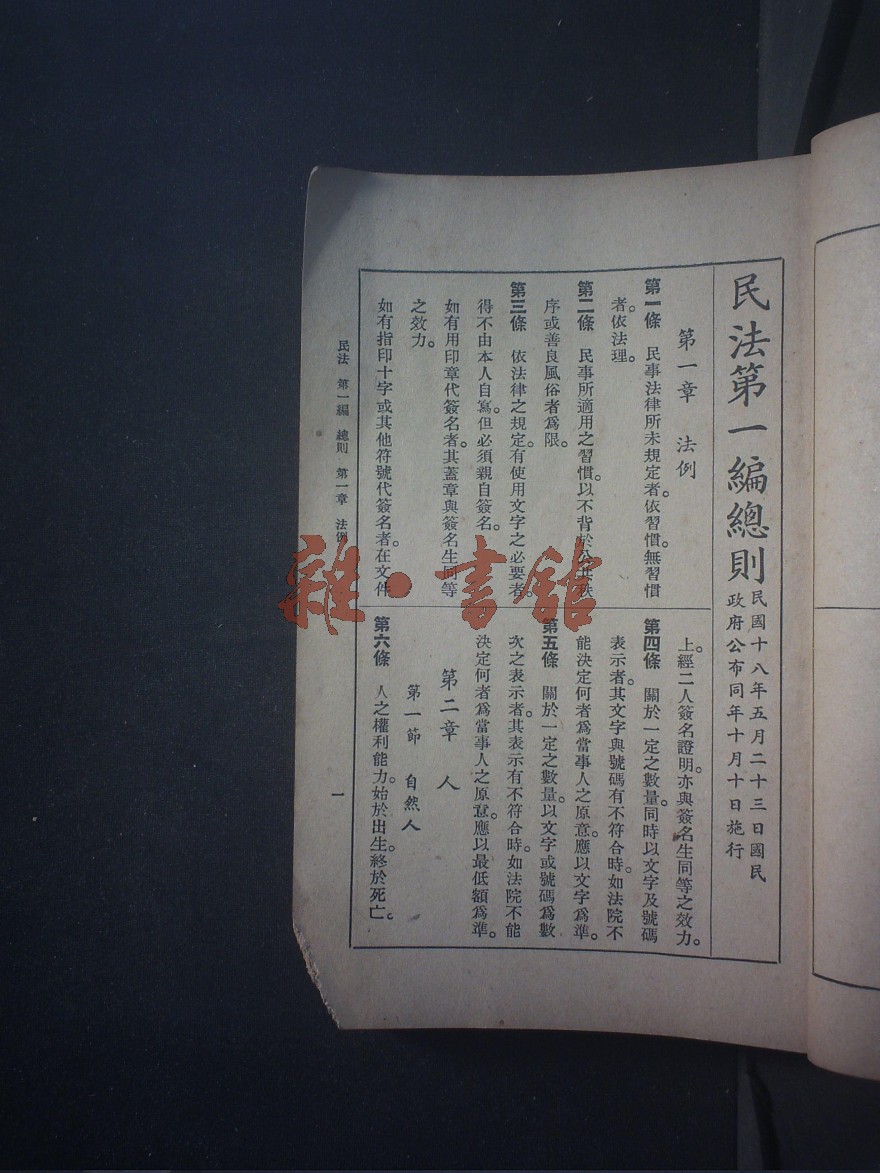 民法第一編總則
民國十八年五月二十三日國民
政府公布同年十月十日施行
第一章 法例
第一條 民事法律所未規定者。依習慣。無習慣
者。依法理。
第二條 民事所適用之習慣。以不背於公共秩
序或善良風俗者爲限。
第三條 依法律之規定。有使用文字之必要者。
得不由本人自寫。但必須親自簽名。
如有用印章代簽名者。其蓋章與簽名生同等
之效力。
如有指印十字或其他符號代簽名者。在文件
上。經二人簽名證明。亦與簽名生同等之效力。
第四條 關於一定之數量。同時以文字及號碼
表示者。其文字與號碼有不符合時。如法院不
能決定何者爲當事人之原意。應以文字爲準。
第五條 關於一定之數量。以文字或號碼爲數
次之表示者。其表示有不符合時。如法院不能
決定何者爲當事人之原意。應以最低額爲準。
第二章 人
第一節 自然人
第六條 人之權利能力。始於出生。終於死亡。
民法 第一編 總則 第一章 法例
一
雜·書館